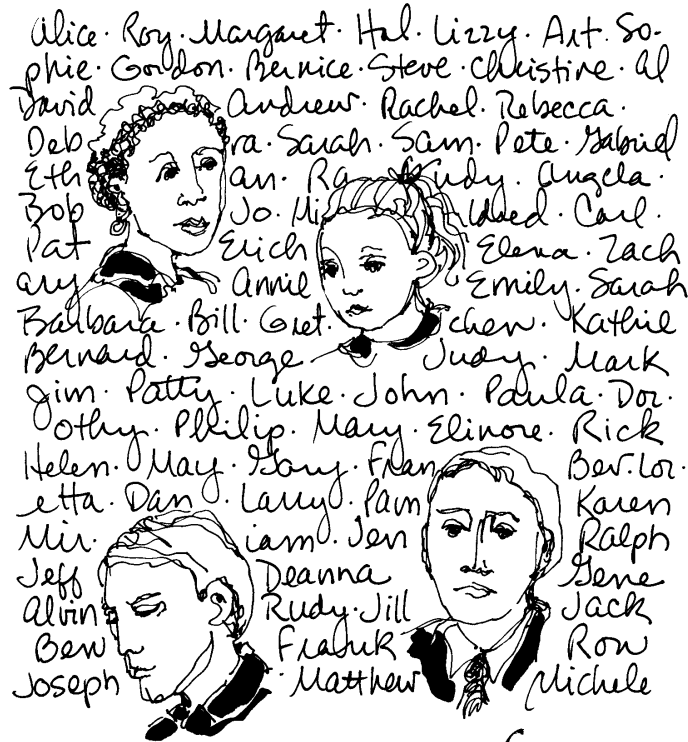 Alice · Roy · Margaret · Hal · Lizzy · Art · So-
phie · Gordon · Bernice · Steve · Christine · Al
David Andrew · Rachel · Rebecca ·
Deb ra · Sarah · Sam · Pete · Gabriel
Eth an · Ra udy · Angela ·
Bob Jo · Mi ldred · Carl ·
Pat Erich Elena · Zach
ary Annie Emily · Sarah
Barbara · Bill · Gret. chen · Kathie
Bernard · George Judy · Mark
Jim · Patty · Luke · John · Paula · Dor.
othy · Philip · Mary · Elinore · Rick
Helen · May · Gary · Fran Bev. Lor.
etta · Dan · Larry · Pam Karen
Mir. iam · Jen Ralph
Jeff Deanna Gene
Alvin Rudy · Jill Jack
Ben Frank Ron
Joseph · Matthew Michele